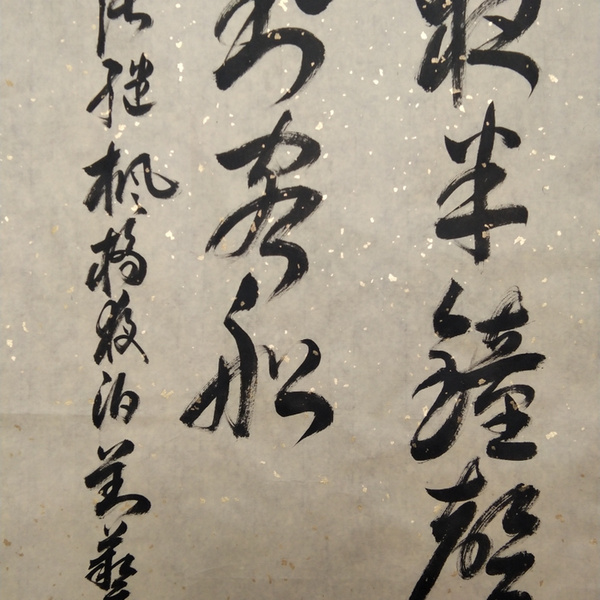 夜半鐘聲
到客船
張繼楓橋夜泊